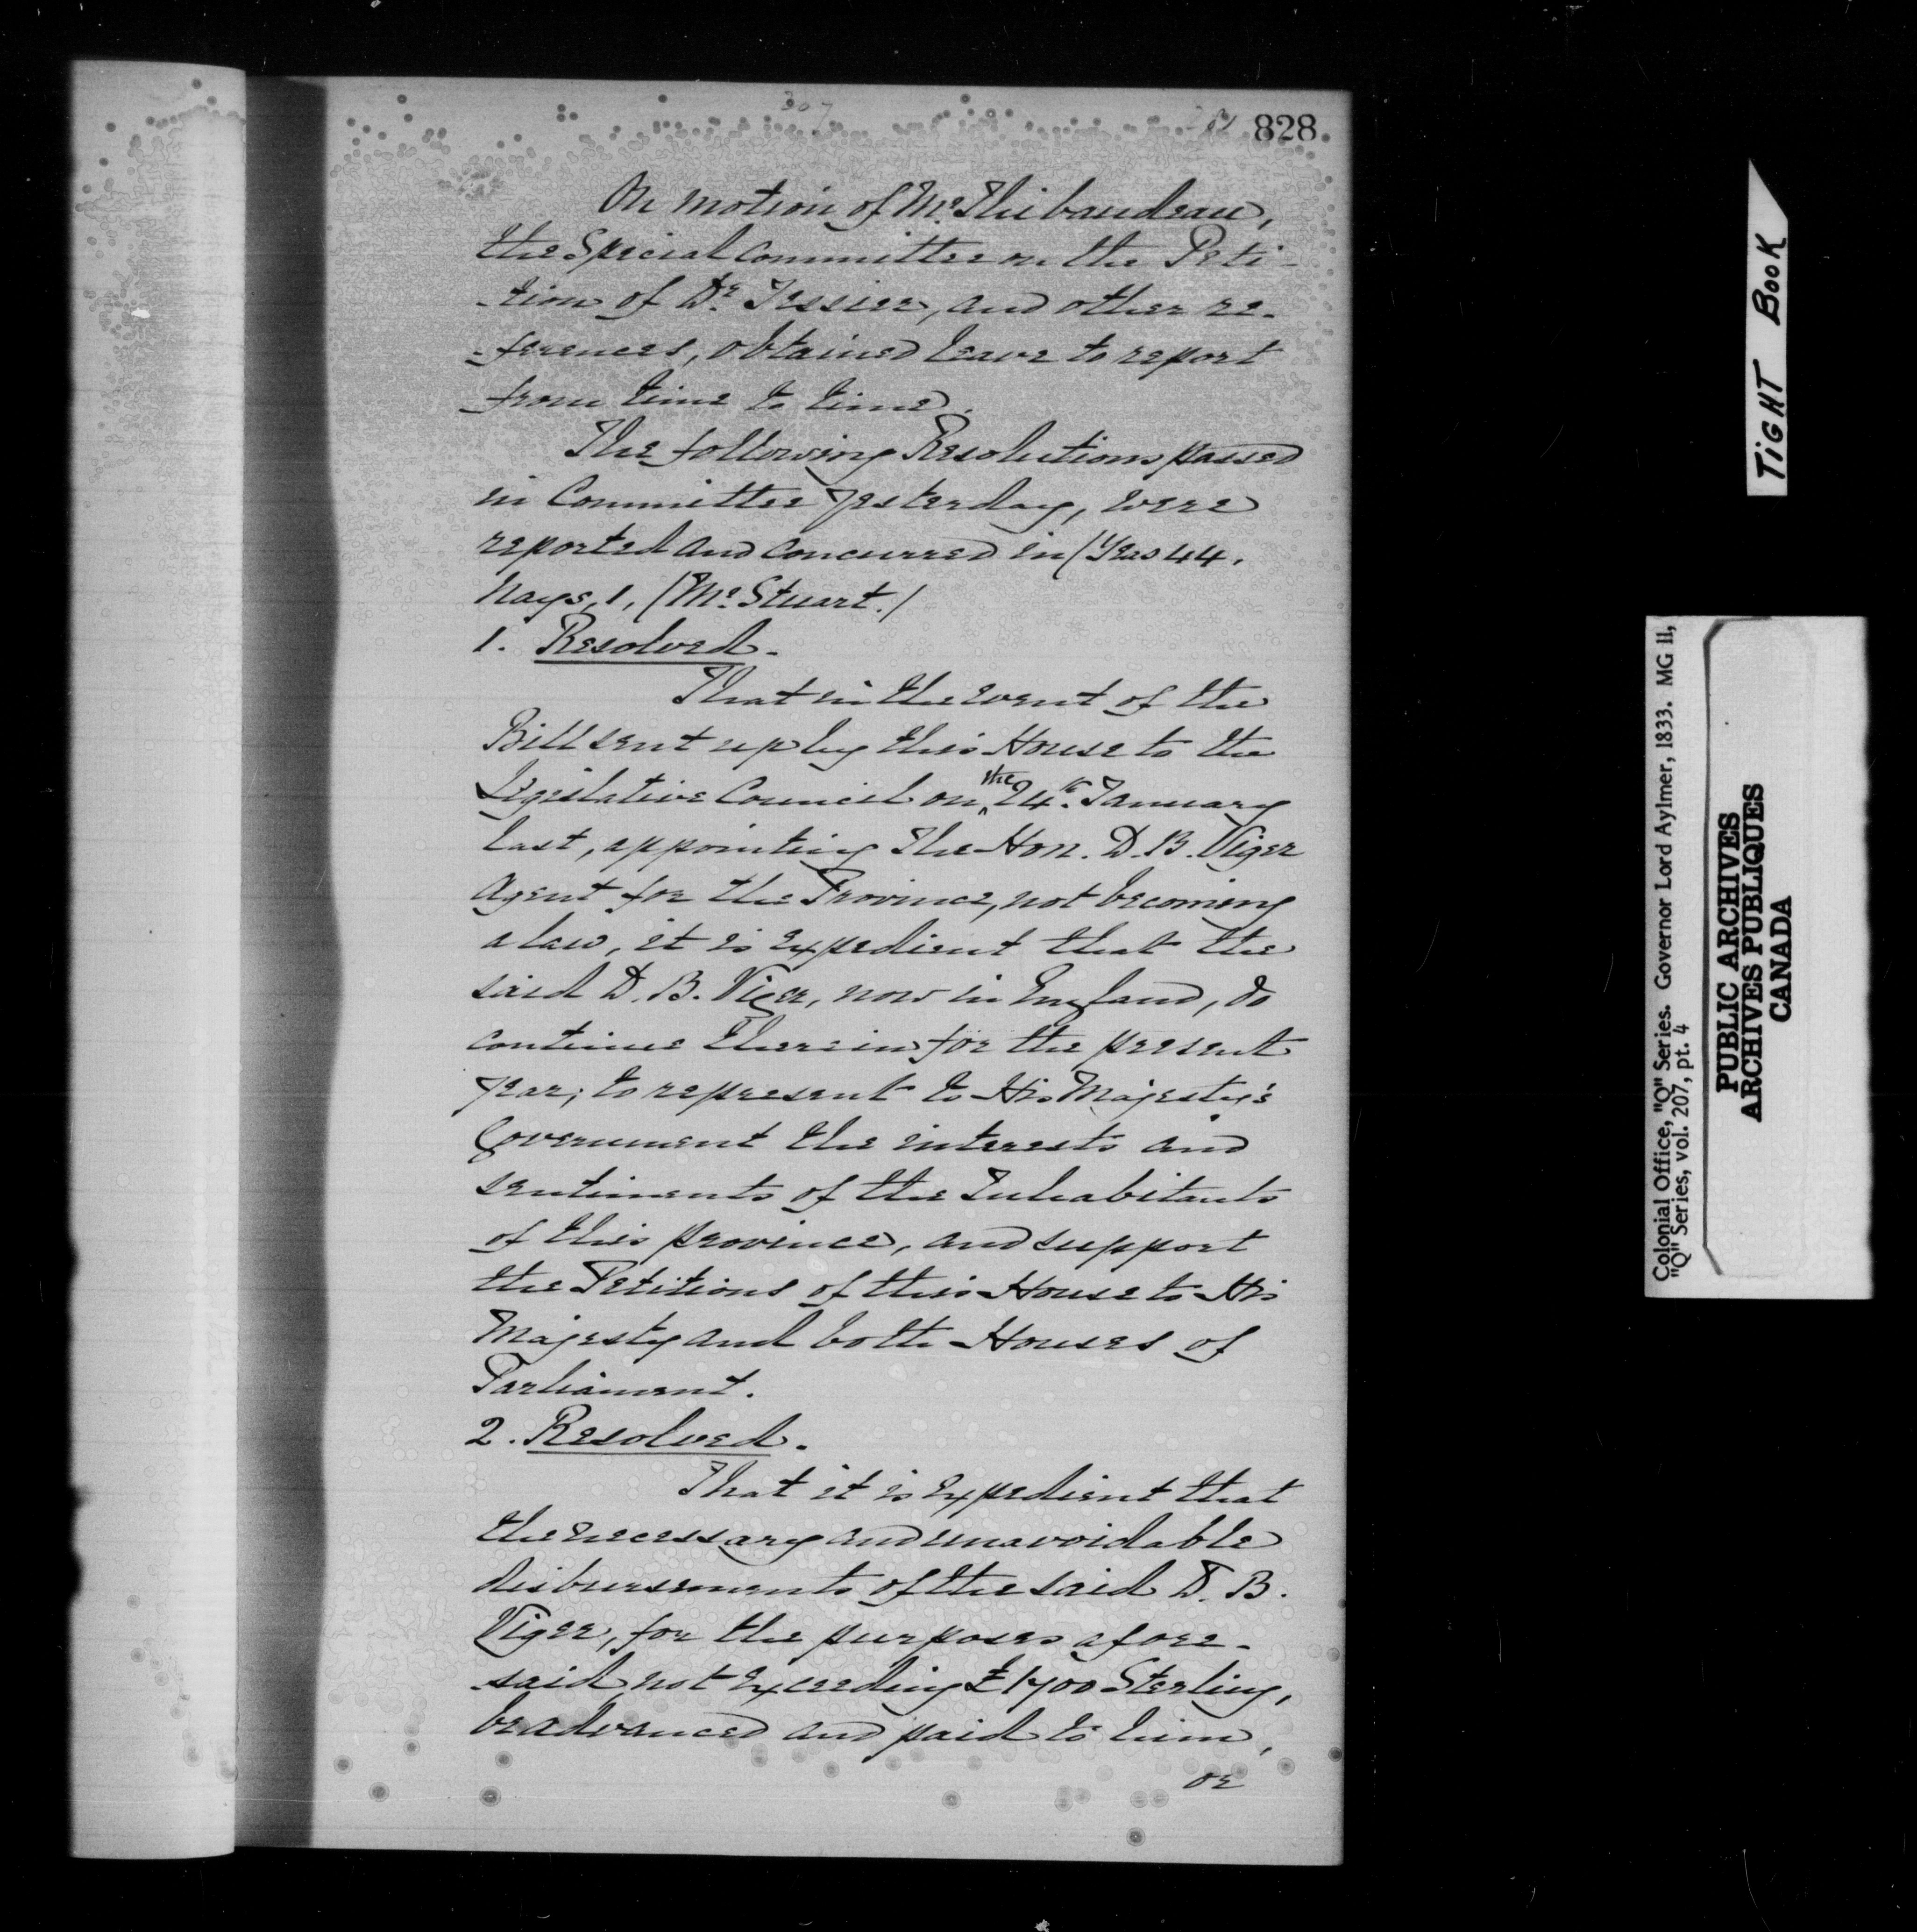 307
828
On motion of Mr. Thibaudeau,
the Special Committee on the Peti-
-tion of Dr. Tessier, and other re-
-ferences, obtained leave to report
from time to time.
The following Resolutions passed
in Committee yesterday, were
reported and concurred in (Yeas 44.
Nays, 1, (Mr. Stuart.)
1. Resolved.
That in the event of the
Bill sent up by this House to the
Legislative Council on the 24th. January
last, appointing the Hon. D. B. Viger
Agent for the Province, not becoming
a law, it is expedient that the
said D. B. Viger, now in England, do
continue therein for the present
year; to represent to His Majesty's
Government the interests and
sentiments of the Inhabitants
of this province, and support
the Petitions of this House to His
Majesty and both Houses of
Parliament.
2. Resolved.
That it is expedient that
the necessary and unavoidable
disbursements of the said D. B.
Viger, for the purposes afore-
said not exceeding £1700 Sterling,
be advanced and paid to him,
or
TIGHT BOOK
Colonial Office, "Q" Series. Governor Lord Aylmer, 1833. MG 11,
"Q" Series, vol. 207, pt. 4
PUBLIC ARCHIVES
ARCHIVES PUBLIQUES
CANADA